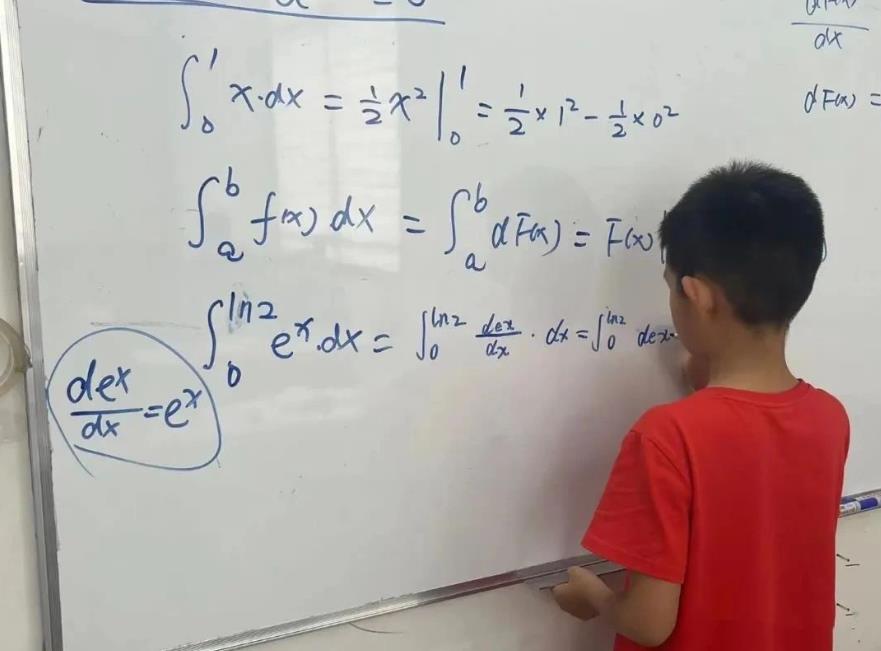 ∫₀¹ x·dx = ½x² |₀¹ = ½ × 1² - ½ × 0²
∫ₐᵇ f(x) dx = ∫ₐᵇ dF(x) = F(x)
∫₀^{ln2} eˣ·dx = ∫₀^{ln2} deˣ/dx · dx = ∫₀^{ln2} deˣ
deˣ/dx = eˣ
dx
dF(x) =